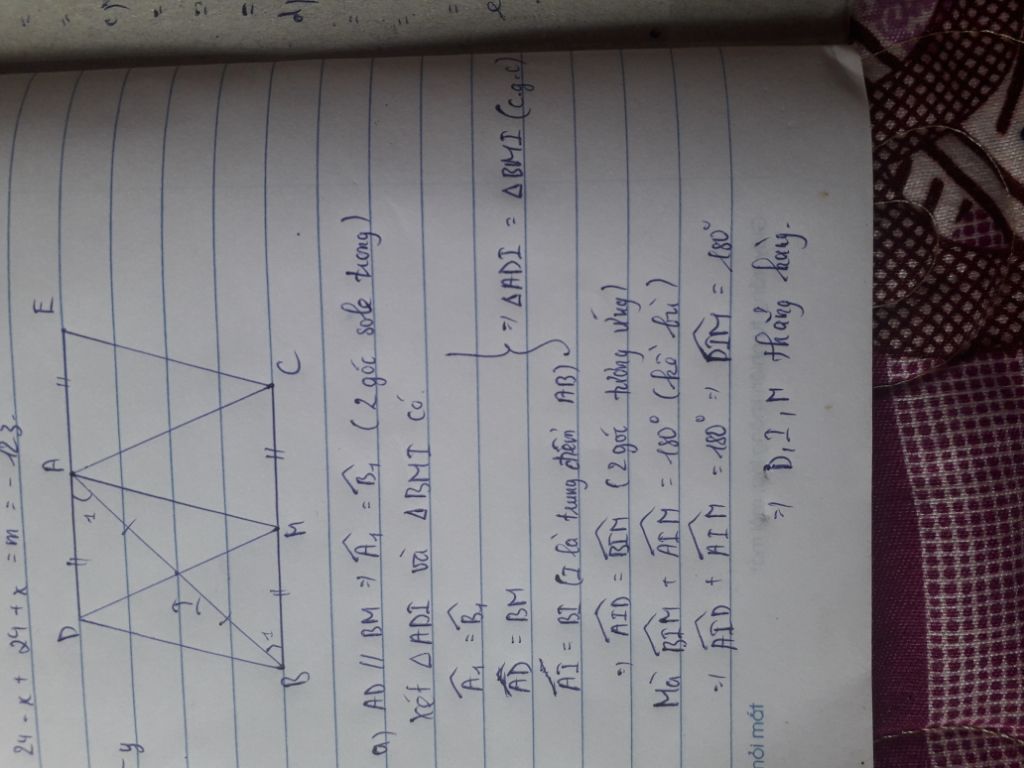 24 - x + 24 + x = m = -123.
-y
c)
=
=
=
d)
=
=
D A E
1
I
1
B M C
a) AD // BM => Â₁ = B̂₁ (2 góc sole trong)
Xét ΔADI và ΔBMI có
Â₁ = B̂₁
AD = BM
AI = BI (I là trung điểm AB)
=> ΔADI = ΔBMI (c.g.c)
=> AID = BIM (2 góc tương ứng)
Mà BIM + AIM = 180° (kề bù)
=> AID + AIM = 180° => DIM = 180°
=> D, I, M thẳng hàng.
mỏi mắt